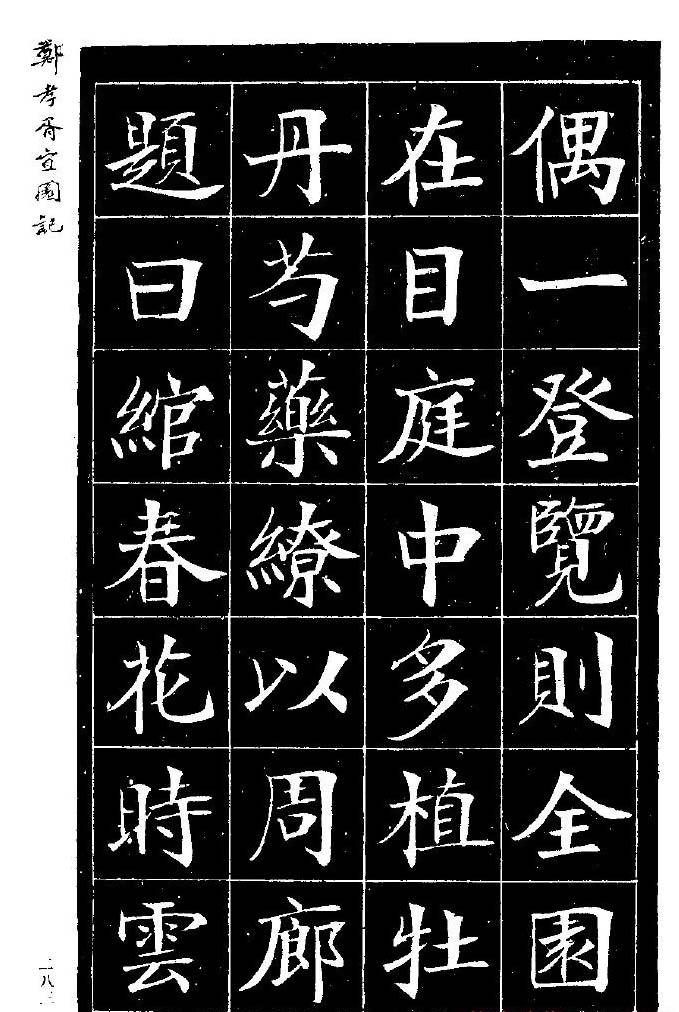 偶一登覽則全園
在目庭中多植牡
丹芍藥繚以周廊
題曰綰春花時雲
鄭孝胥宜園記
二八三